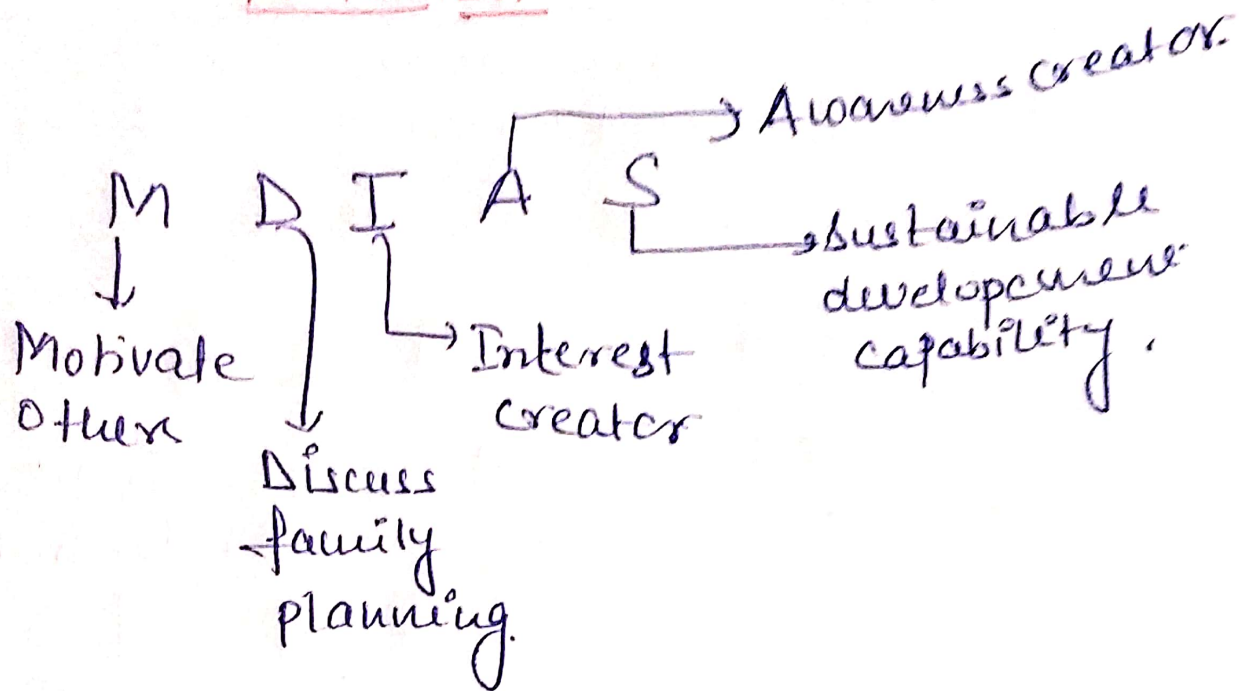 Awareness creator.
M D I A S
Sustainable
development
capability.
Motivate
Other
Interest
creator
Discuss
family
planning.